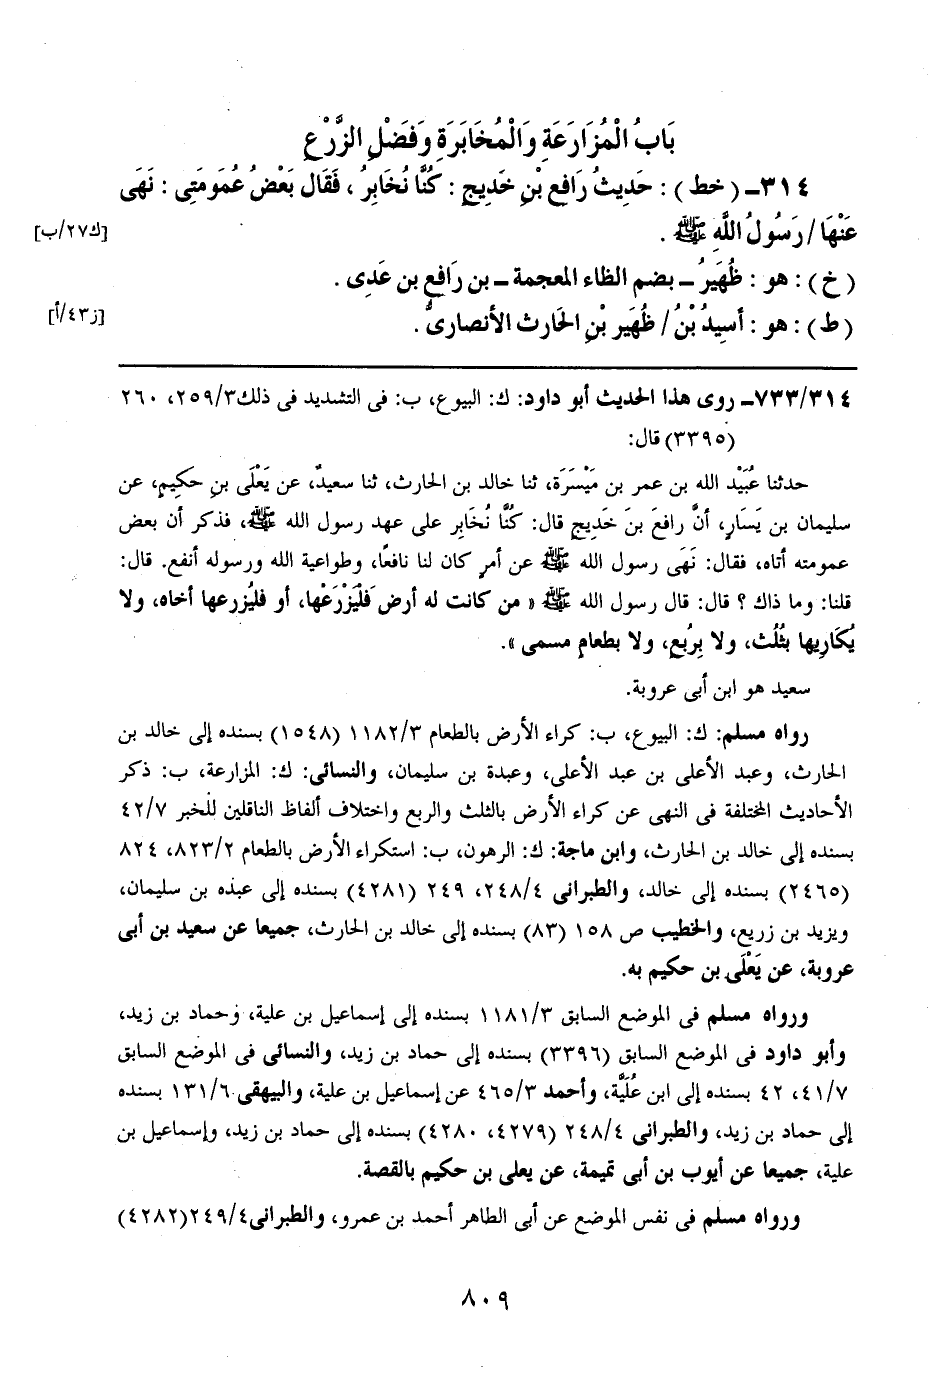 بَابُ الْمُزَارَعَةِ وَالْمُخَابَرَةِ وَفَضْلِ الزَّرْعِ
٣١٤ـ (خط) : حَدِيثُ رَافِعِ بْنِ خَدِيجٍ : كُنَّا نُخَابِرُ ، فَقَال بَعْضُ عُمُومَتِى : نَهَى
عَنْهَا / رَسُولُ اللَّهِ ﷺ .
[ك٢٧/ب]
(خ) : هو : ظُهَيْرُ ـ بضم الظاء المعجمة ـ بن رَافِع بن عَدِى .
(ط) : هو : أسيِدُ بْنُ / ظُهَيِر بْنِ الحَارث الأنصارىُّ .
[ز٤٣/أ]
٧٣٣/٣١٤ـ روى هذا الحديث أبو داود: ك: البيوع، ب: فى التشديد فى ذلك٢٥٩/٣، ٢٦٠
(٣٣٩٥) قال:
حدثنا عُبَيْد الله بن عمر بن مَيْسَرَة، ثنا خالد بن الحارث، ثنا سعيدٌ، عن يَعْلَى بنِ حَكِيمٍ، عن
سليمان بن يَسَارٍ، أنَّ رافعَ بنَ خَدِيجٍ قال: كُنَّا نُخَابِر على عهد رسول الله ﷺ، فذكر أن بعض
عمومته أتاه، فقال: نَهَى رسول الله ﷺ عن أمرٍ كان لنا نافعًا، وطواعية الله ورسوله أنفع. قال:
قلنا: وما ذاك ؟ قال: قال رسول الله ﷺ « من كانت له أرض فَلْيَزْرَعْها، أو فليُزرعها أخاه، ولا
يُكَارِيها بثُلُث، ولا بِرُبع، ولا بطعامٍ مسمى ».
سعيد هو ابن أبى عروبة.
رواه مسلم: ك: البيوع، ب: كراء الأرض بالطعام ١١٨٢/٣ (١٥٤٨) بسنده إلى خالد بن
الحارث، وعبد الأعلى بن عبد الأعلى، وعبدة بن سليمان، والنسائى: ك: المزارعة، ب: ذكر
الأحاديث المختلفة فى النهى عن كراء الأرض بالثلث والربع واختلاف ألفاظ الناقلين للخبر ٤٢/٧
بسنده إلى خالد بن الحارث، وابن ماجة: ك: الرهون، ب: استكراء الأرض بالطعام ٨٢٣/٢، ٨٢٤
(٢٤٦٥) بسنده إلى خالد، والطبرانى ٢٤٨/٤، ٢٤٩ (٤٢٨١) بسنده إلى عبده بن سليمان،
ويزيد بن زريع، والخطيب ص ١٥٨ (٨٣) بسنده إلى خالد بن الحارث، جميعا عن سعيد بن أبى
عروبة، عن يَعْلَى بن حكيم به.
ورواه مسلم فى الموضع السابق ١١٨١/٣ بسنده إلى إسماعيل بن علية، وحماد بن زيد،
وأبو داود فى الموضع السابق (٣٣٩٦) بسنده إلى حماد بن زيد، والنسائى فى الموضع السابق
٤١/٧، ٤٢ بسنده إلى ابن عُلَيَّة، وأحمد ٤٦٥/٣ عن إسماعيل بن علية، والبيهقى ١٣١/٦ بسنده
إلى حماد بن زيد، والطبرانى ٢٤٨/٤ (٤٢٧٩، ٤٢٨٠) بسنده إلى حماد بن زيد، وإسماعيل بن
علية، جميعا عن أيوب بن أبى تميمة، عن يعلى بن حكيم بالقصة.
ورواه مسلم فى نفس الموضع عن أبى الطاهر أحمد بن عمرو، والطبرانى٢٤٩/٤(٤٢٨٢)
٨٠٩